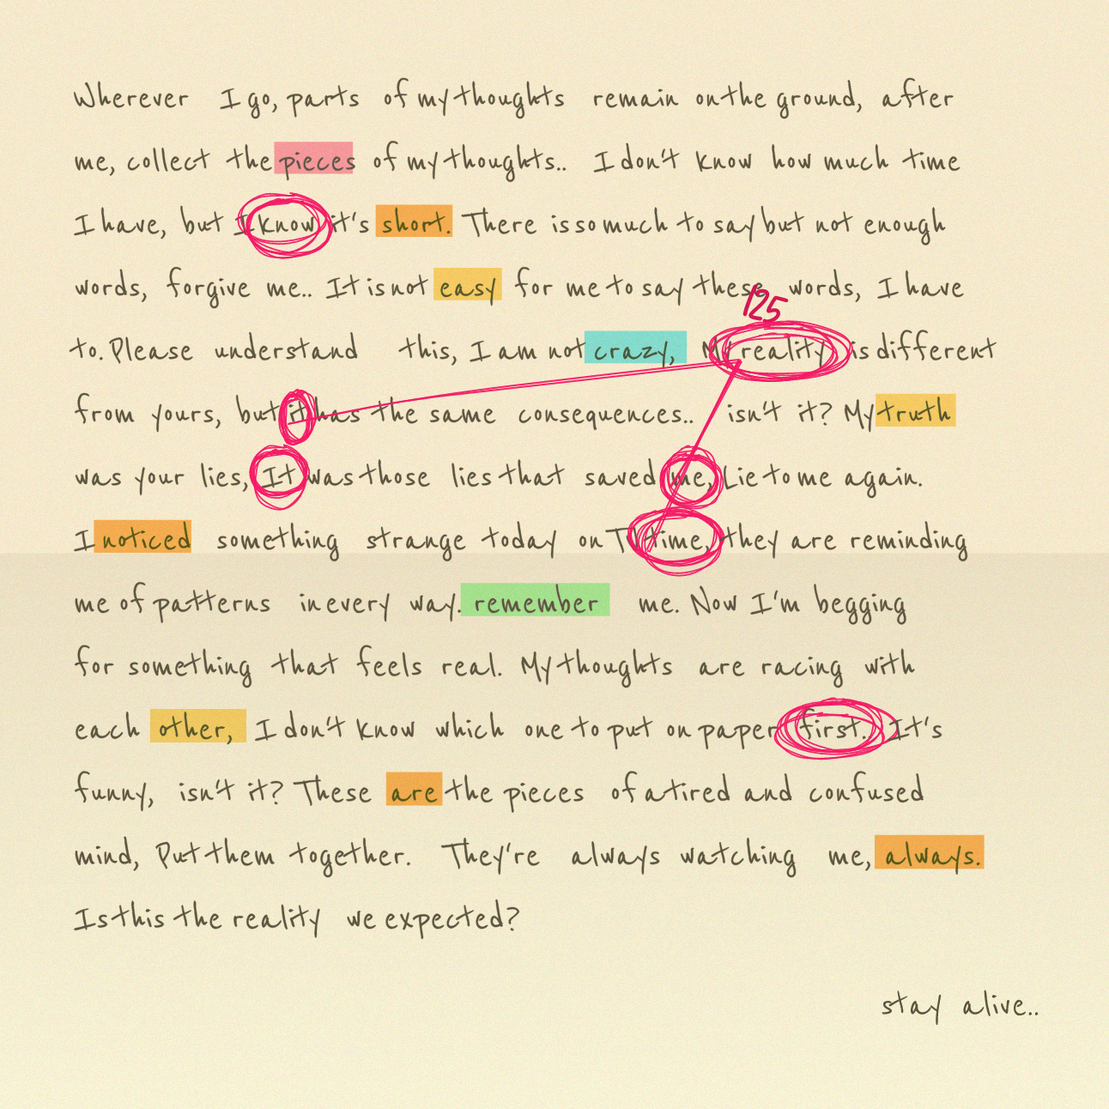 Wherever I go, parts of my thoughts remain on the ground, after
me, collect the pieces of my thoughts.. I don't know how much time
I have, but I know it's short. There is so much to say but not enough
words, forgive me.. It is not easy for me to say these words, I have
125
to. Please understand this, I am not crazy, My reality is different
from yours, but it has the same consequences.. isn't it? My truth
was your lies, It was those lies that saved me, Lie to me again.
I noticed something strange today on TV time, they are reminding
me of patterns in every way. remember me. Now I'm begging
for something that feels real. My thoughts are racing with
each other, I don't know which one to put on paper first. It's
funny, isn't it? These are the pieces of a tired and confused
mind, Put them together. They're always watching me, always.
Is this the reality we expected?
stay alive..